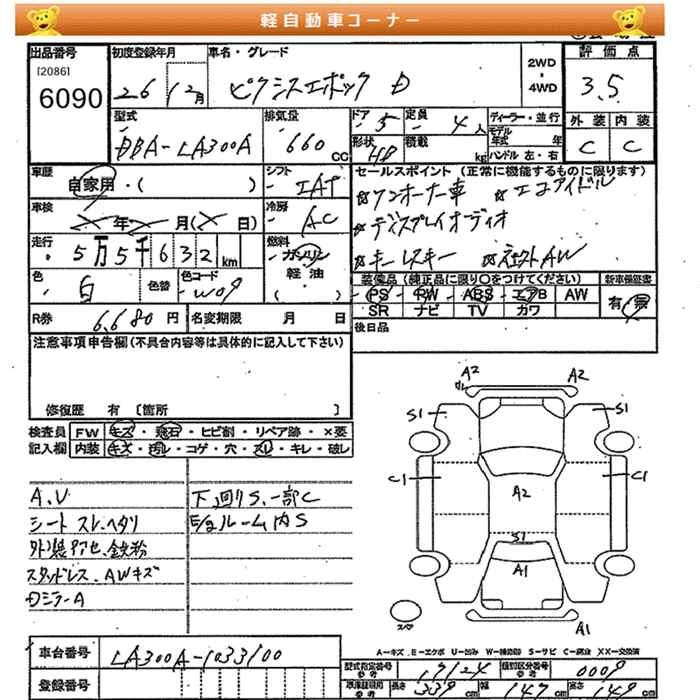 軽自動車コーナー
出品番号 初度登録年月 車名・グレード 評価点
[2086]
6090 26 12月 ピクシスエポック D 2WD・4WD 3.5
型式 排気量 ドア 5 定員 4人 ディーラー・並行 外装 内装
DBA-LA300A 660cc 形状 HB 積載 kg モデル年式 年 ハンドル 左・右 C C
車歴 シフト セールスポイント (正常に機能するものに限ります)
自家用・( ) IAT ☆ワンオーナー車 ☆エコアイドル
車検 冷房 ☆ディスプレイオーディオ
年 月( 日) AC
走行 燃料 ☆キーレスキー ☆社外AW
5万5千632km ガソリン
軽油
( )
色 色替 色コード 装備品 (純正品に限り○をつけてください) 新車保証書
白 W09 PS・PW・ABS・エアB AW 有・無
SR ナビ TV カワ
R券 6,680円 名変期限 月 日 後日品
注意事項申告欄(不具合内容等は具体的に記入して下さい)
修復歴 有 〔箇所 〕
検査員 FW キズ・飛石・ヒビ割・リペア跡・×要
記入欄 内装 キズ・汚れ・コゲ・穴・スレ・キレ・破レ
A.V 下回りS、一部C
シートスレ、ヘタリ E/gルーム内S
外装アセ、鉄粉
スタッドレス、AWキズ
DミラーA
A2 A2
S1 S1
C1 C1
A2
S1
A1
A1
スペア
A-キズ E-エクボ U-凹み W-補修跡 S-サビ C-腐食 XX-交換済
車台番号 LA300A-1033100
型式指定番号 17124 類別区分番号 0009
登録番号
長さ 339cm 幅 147cm 高さ 149cm